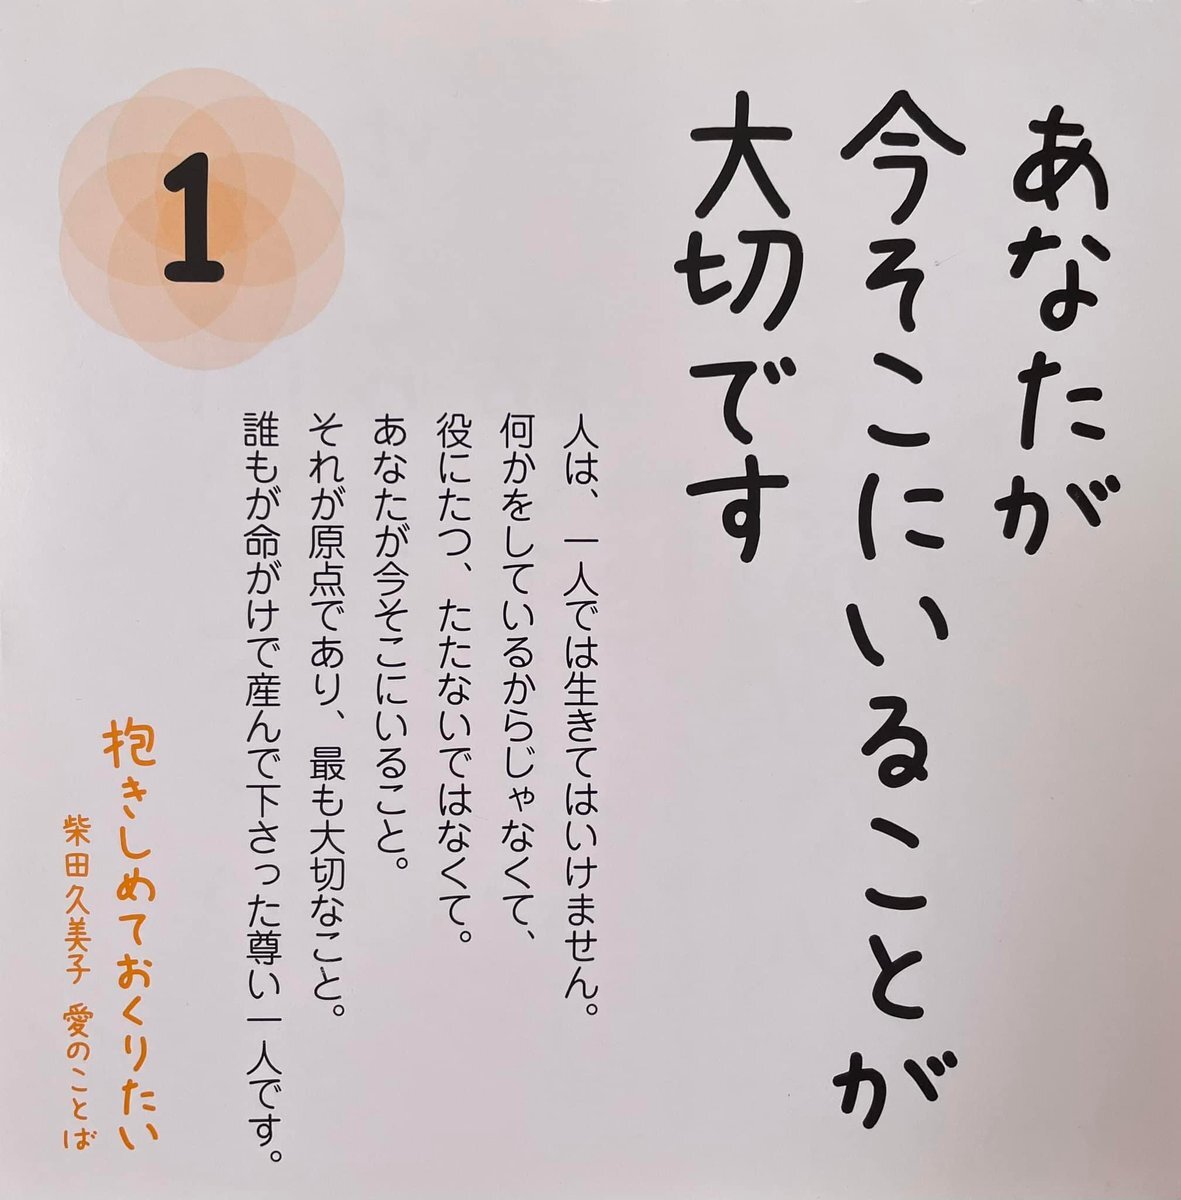 あなたが
今そこにいることが
大切です
1
人は、一人では生きてはいけません。
何かをしているからじゃなくて、
役にたつ、たたないではなくて。
あなたが今そこにいること。
それが原点であり、最も大切なこと。
誰もが命がけで産んで下さった尊い一人です。
抱きしめておくりたい
柴田久美子 愛のことば